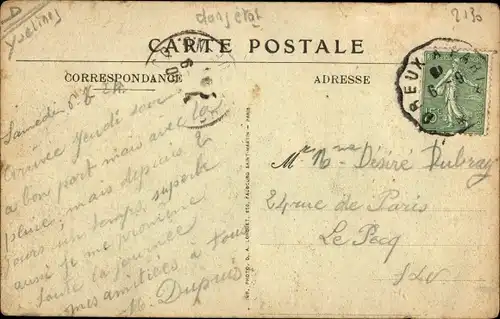 Yvelines
dans état
2130
CARTE POSTALE
CORRESPONDANCE
ADRESSE
Samedi
Arrivée Jeudi soir
à bon port mais avec la
pluie, mais depuis 2
jours un temps superbe
aussi je me promène
toute la journée
mes amitiés à tous
M. Dupuis
Désiré Dubray
24 rue de Paris
Le Pecq
S&O
DREUX A PARIS